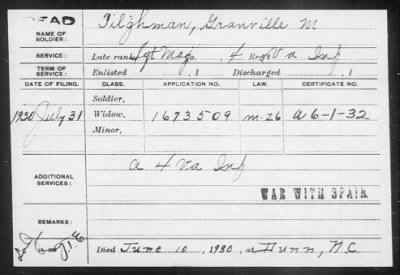 DEAD
NAME OF SOLDIER: Tilghman, Granville M
SERVICE: Late rank Sgt Maj. 4 Reg Va Inf
TERM OF SERVICE: Enlisted , 1 Discharged , 1
DATE OF FILING. CLASS. APPLICATION NO. LAW. CERTIFICATE NO.
Soldier,
1930 July 31 Widow, 1673509 m-26 A 6-1-32
Minor,
ADDITIONAL SERVICES: a 4 Va Inf
WAR WITH SPAIN
REMARKS:
Died June 10, 1930, at Dunn, N.C.